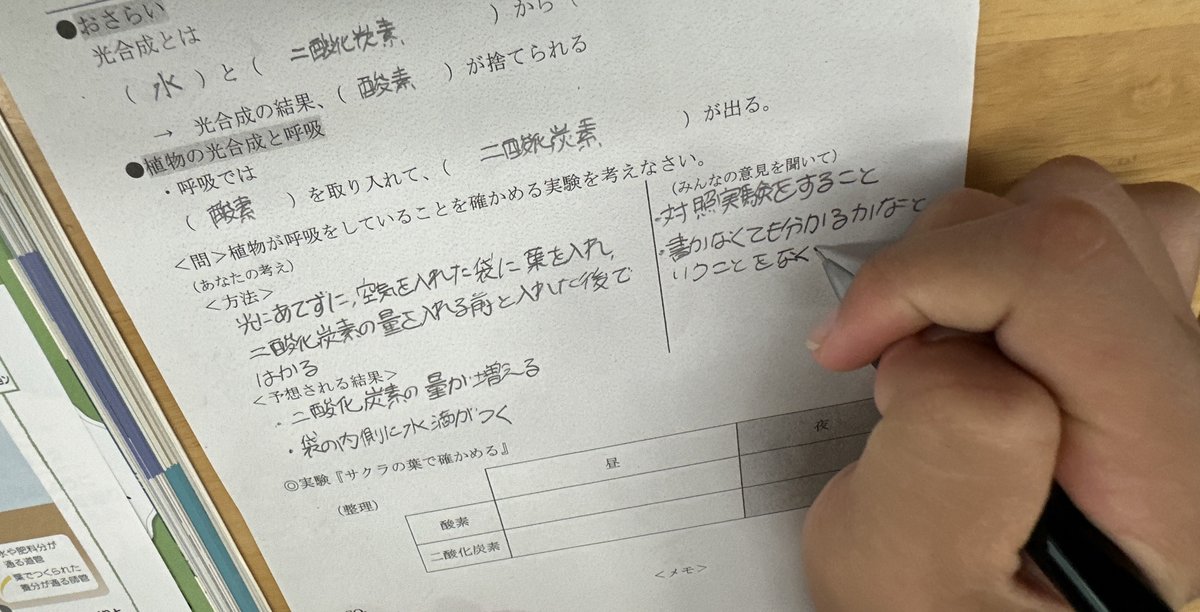 ●おさらい
光合成とは
( 水 ) と ( 二酸化炭素 ) から (
→ 光合成の結果、( 酸素 ) が捨てられる
●植物の光合成と呼吸
・呼吸では
( 酸素 ) を取り入れて、( 二酸化炭素 ) が出る。
<問>植物が呼吸をしていることを確かめる実験を考えなさい。
(あなたの考え)
<方法>
光にあてずに、空気を入れた袋に葉を入れ、
二酸化炭素の量を入れる前と入れた後で
はかる
<予想される結果>
・二酸化炭素の量が増える
・袋の内側に水滴がつく
(みんなの意見を聞いて)
・対照実験をすること
・書かなくても分かるかなと
いうことをなく
◎実験『サクラの葉で確かめる』
(整理)
昼 夜
酸素
二酸化炭素
<メモ>
水や肥料分が
通る道管
葉でつくられた
養分が通る師管